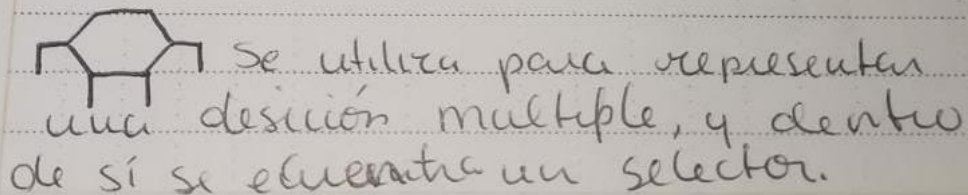 Se utiliza para representar
una desición multiple, y dentro
de sí se encuentra un selector.